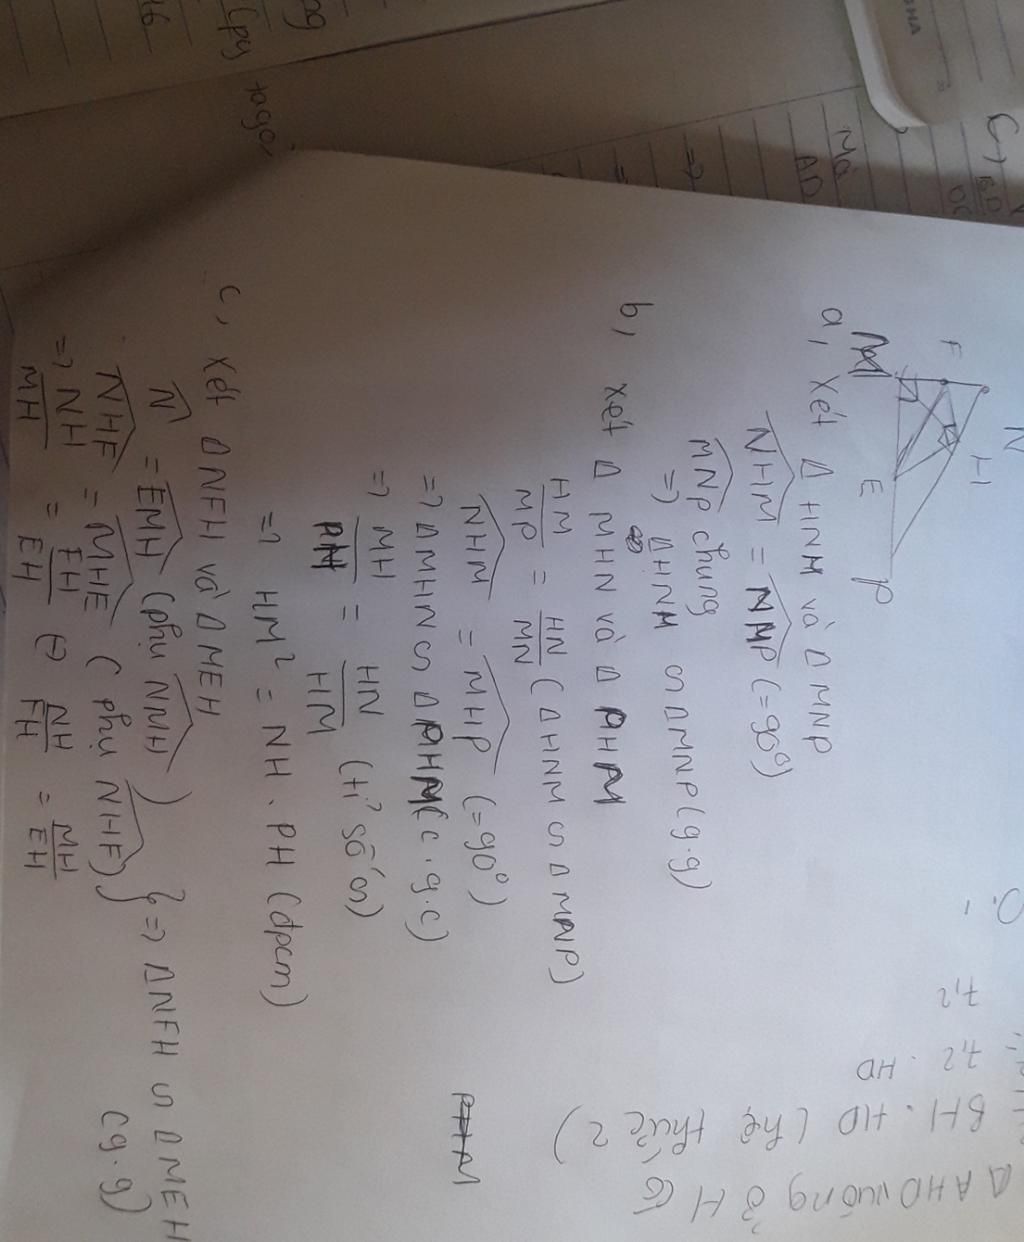 N
F
H
M
E
P
a, Xét Δ HNM và Δ MNP
NHM = NMP (= 90°)
MNP chung
=> ΔHNM ∽ ΔMNP (g.g)
b, Xét Δ MHN và Δ PHM
HM/MP = HN/MN (ΔHNM ∽ ΔMNP)
NHM = MHP (= 90°)
=> ΔMHN ∽ ΔPHM (c.g.c)
=> MH/PH = HN/HM (tỉ số ∽)
=> HM² = NH . PH (đpcm)
c, Xét ΔNFH và ΔMEH
N = EMH (phụ NMH)
NHF = MHE (phụ NHF) } => ΔNFH ∽ ΔMEH
(g.g)
=> NH/MH = FH/EH (=) NH/FH = MH/EH
PHM
ΔAHD vuông ở H có
BH . HD (hệ thức 2)
7,2 . HD
7,2
C,
BD
AD
=>
=>
(py tago)